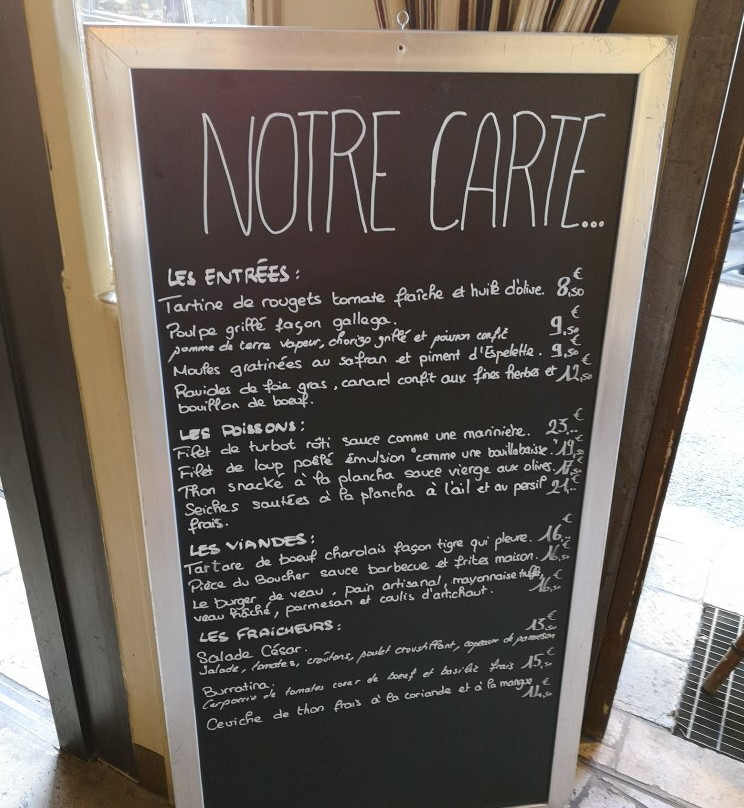 NOTRE CARTE...
LES ENTRÉES :
Tartine de rougets tomate fraîche et huile d'olive. 8,50 €
Poulpe griffé façon gallega. 9,50 €
pomme de terre vapeur, chorizo griffé et poivron confit
Moules gratinées au safran et piment d'Espelette. 9,50 €
Ravioles de foie gras, canard confit aux fines herbes et 12,50 €
bouillon de boeuf.
LES POISSONS :
Filet de turbot rôti sauce comme une marinière. 23.- €
Filet de loup poêlé émulsion "comme une bouillabaisse". 19,50 €
Thon snacké à la plancha sauce vierge aux olives. 17,50 €
Seiches sautées à la plancha à l'ail et au persil 21.- €
frais.
LES VIANDES :
Tartare de boeuf charolais façon tigre qui pleure. 16.- €
Pièce du Boucher sauce barbecue et frites maison. 16,50 €
Le burger de veau, pain artisanal, mayonnaise truffe,
veau haché, parmesan et coulis d'artichaut. 16,50 €
LES FRAICHEURS :
Salade César. 13,50 €
Salade, tomates, croûtons, poulet croustillant, copeaux de parmesan
Burratina. 15,- €
Carpaccio de tomates coeur de boeuf et basilic frais
Ceviche de thon frais à la coriande et à la mangue. 14,50 €